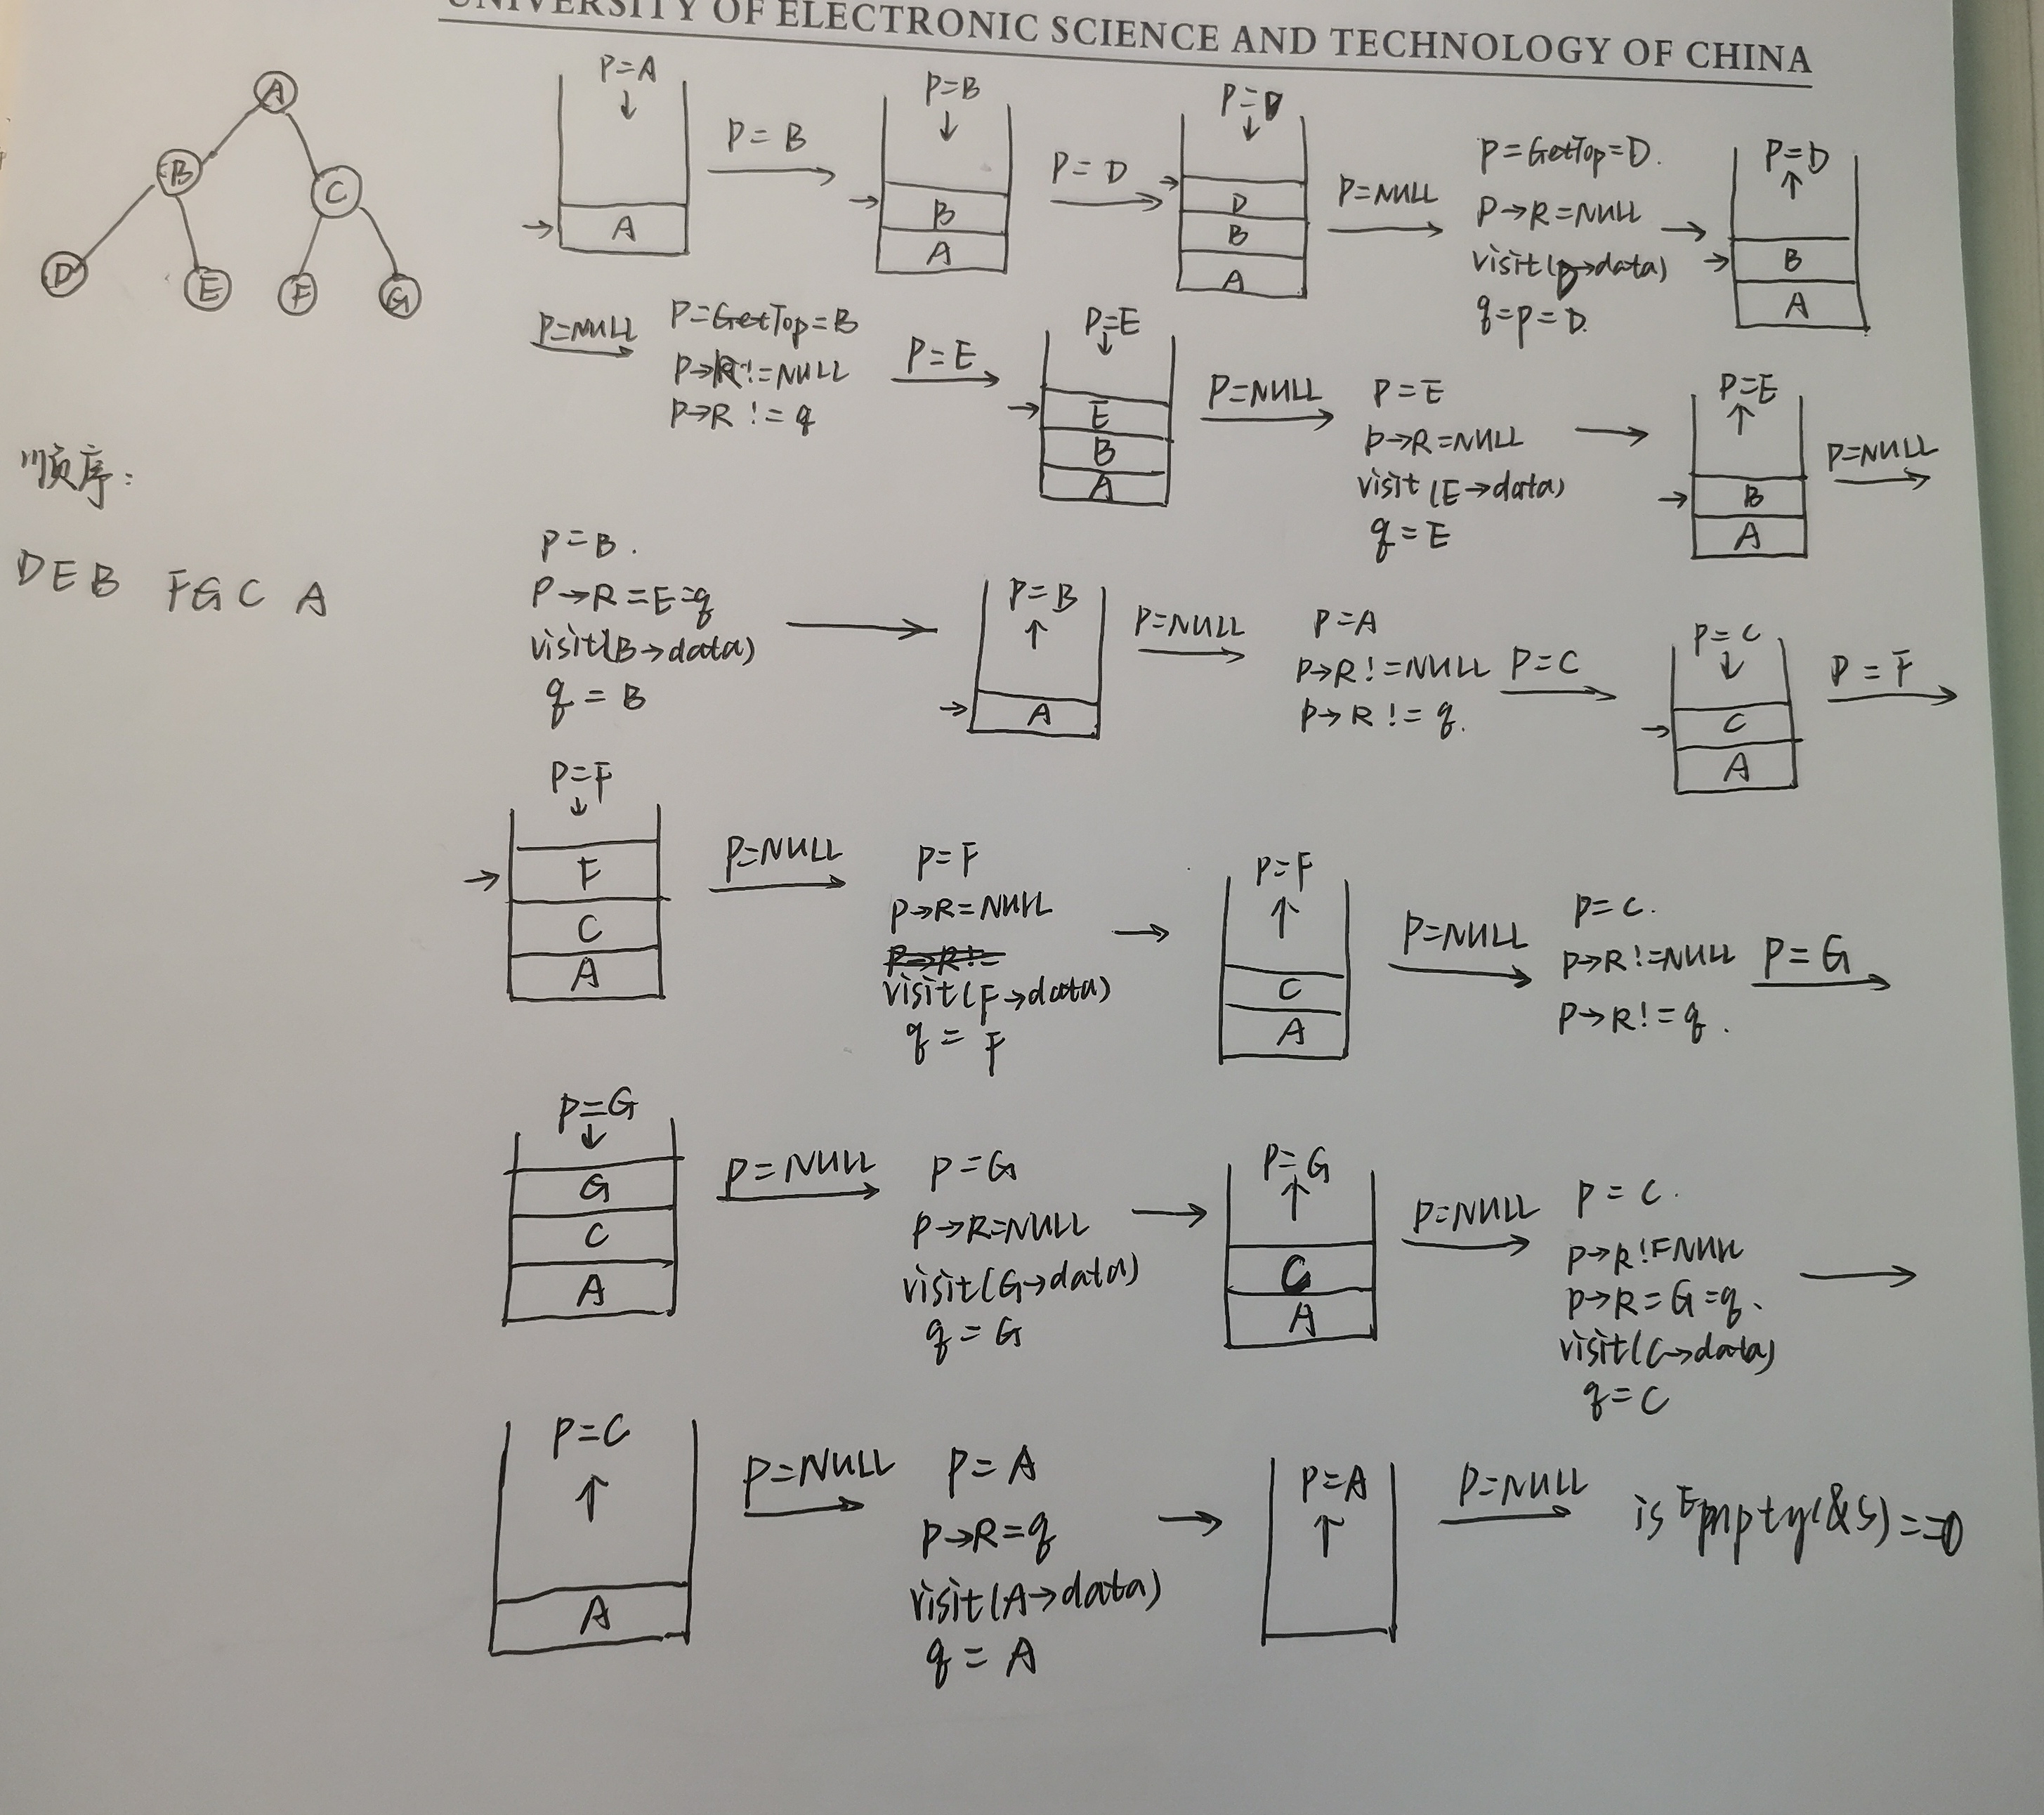 UNIVERSITY OF ELECTRONIC SCIENCE AND TECHNOLOGY OF CHINA
A
B
C
D
E
F
G
顺序:
DEB FGC A
P=A
↓
→ A
P=B
→
P=B
↓
→ B
A
P=D
→
P=D
↓
→ D
B
A
P=NULL
→
P=GetTop=D.
P→R=NULL →
visit(D→data)
q=p=D.
P=D
↑
→ B
A
P=NULL
→
P=GetTop=B
P→R!=NULL
P→R!=q
P=E
→
P=E
↓
→ E
B
A
P=NULL
→
P=E
P→R=NULL →
visit(E→data)
q=E
P=E
↑
→ B
A
P=NULL
→
P=B.
P→R=E=q →
visit(B→data)
q=B
P=B
↑
→ A
P=NULL
→
P=A
P→R!=NULL
P→R!=q.
P=C
→
P=C
↓
→ C
A
P=F
→
P=F
↓
→ F
C
A
P=NULL
→
P=F
P→R=NULL →
P→R!=
visit(F→data)
q=F
P=F
↑
C
A
P=NULL
→
P=C.
P→R!=NULL
P→R!=q.
P=G
→
P=G
↓
G
C
A
P=NULL
→
P=G
P→R=NULL →
visit(G→data)
q=G
P=G
↑
C
A
P=NULL
→
P=C.
P→R!=NULL
P→R=G=q. →
visit(C→data)
q=C
P=C
↑
A
P=NULL
→
P=A
P→R=q →
visit(A→data)
q=A
P=A
↑
P=NULL
→
isEmpty(&S)==0